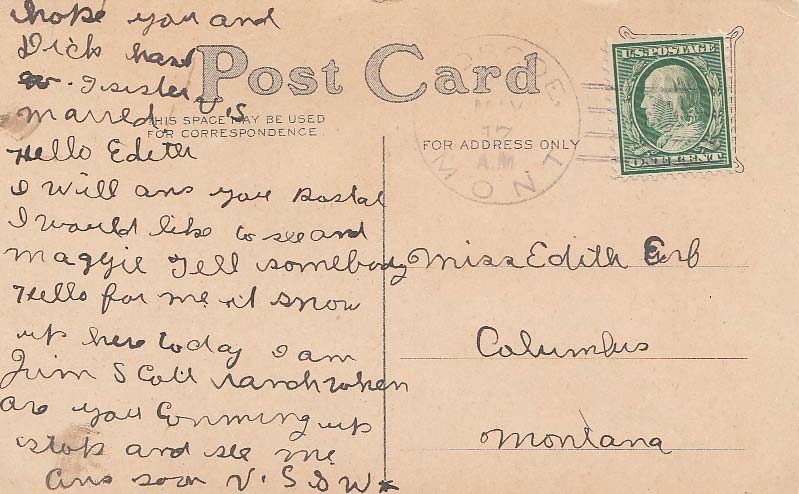 I hope you and
Dick hant
sister
marred. V. S
Hello Edith
I will ans you Postal
I would like to see and
Maggie Tell somebody
Hello for me it snow
up here today I am
Jim Scott ranch when
are you Comming up
stop and see me
Ans soon V. S D W
Post Card
THIS SPACE MAY BE USED
FOR CORRESPONDENCE.
FOR ADDRESS ONLY
ROSCOE,
MAY
17
A.M
MONT
U.S. POSTAGE
ONE CENT
Miss Edith Erb
Columbus
Montana